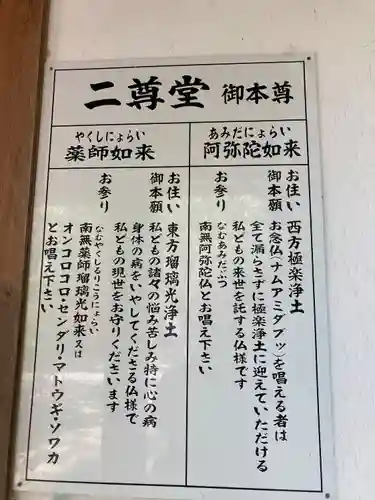 二尊堂 御本尊
あみだにょらい
阿弥陀如来
お住い 西方極楽浄土
御本願 お念仏(ナムアミダブツ)を唱える者は
全て漏らさずに極楽浄土に迎えていただける
私どもの来世を託する仏様です
なむあみだぶつ
お参り 南無阿弥陀仏とお唱え下さい
やくしにょらい
薬師如来
お住い 東方瑠璃光浄土
御本願 私どもの諸々の悩み苦しみ特に心の病
身体の病をいやしてくださる仏様で
私どもの現世をお守りくださいます
なむやくしるりこうにょらい
お参り 南無薬師瑠璃光如来又は
オンコロコロ・センダリ・マトウギ・ソワカ
とお唱え下さい